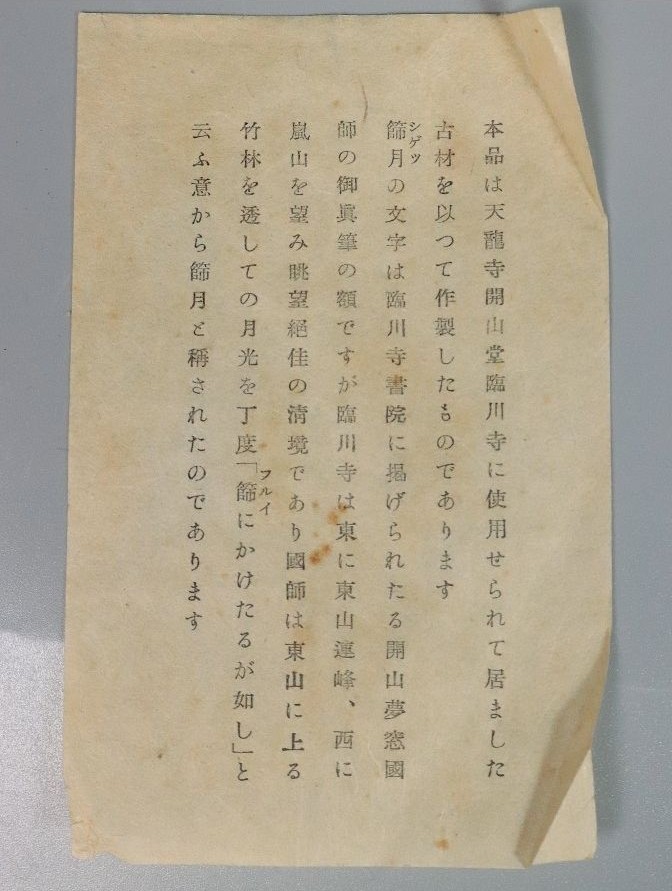 本品は天龍寺開山堂臨川寺に使用せられて居ました
古材を以つて作製したものであります
篩月の文字は臨川寺書院に掲げられたる開山夢窓國
シゲツ
師の御眞筆の額ですが臨川寺は東に東山連峰、西に
嵐山を望み眺望絕佳の淸境であり國師は東山に上る
竹林を透しての月光を丁度「篩にかけたるが如し」と
フルイ
云ふ意から篩月と稱されたのであります